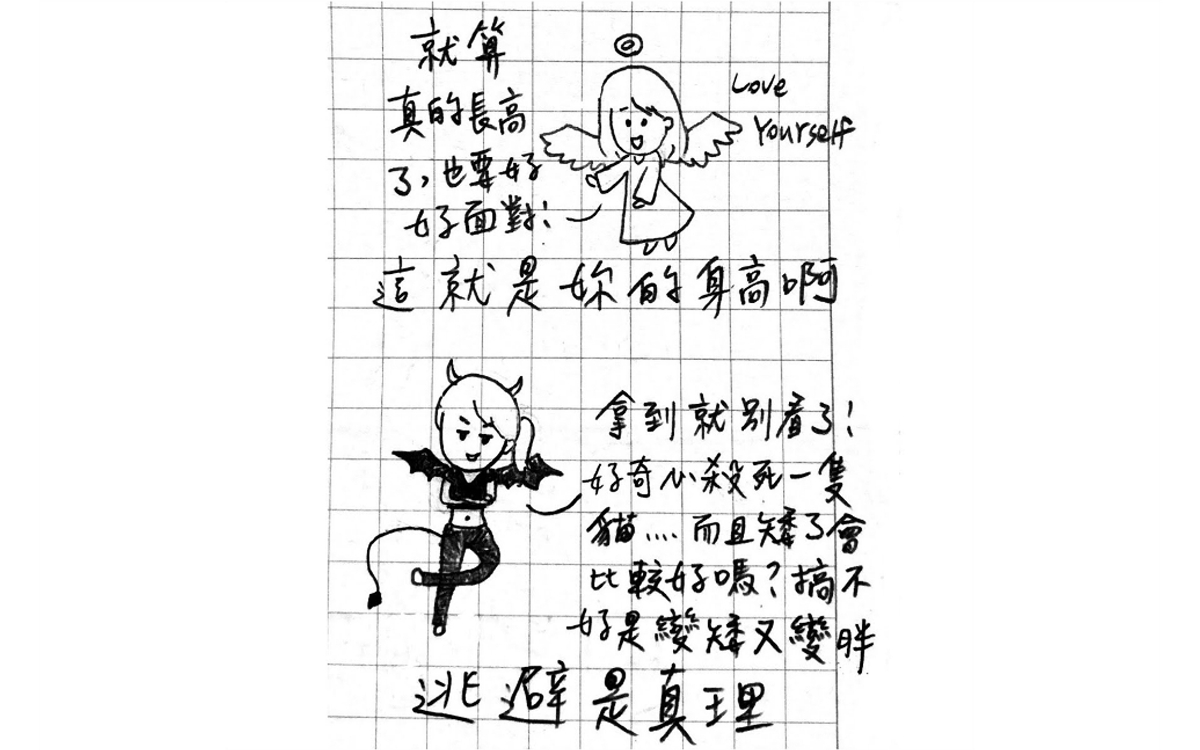 就算
真的長高
了,也要好
好面對!
Love
Yourself
這就是妳的身高啊
拿到就別看了!
好奇心殺死一隻
貓....而且矮了會
比較好嗎?搞不
好是變矮又變胖
逃避是真理